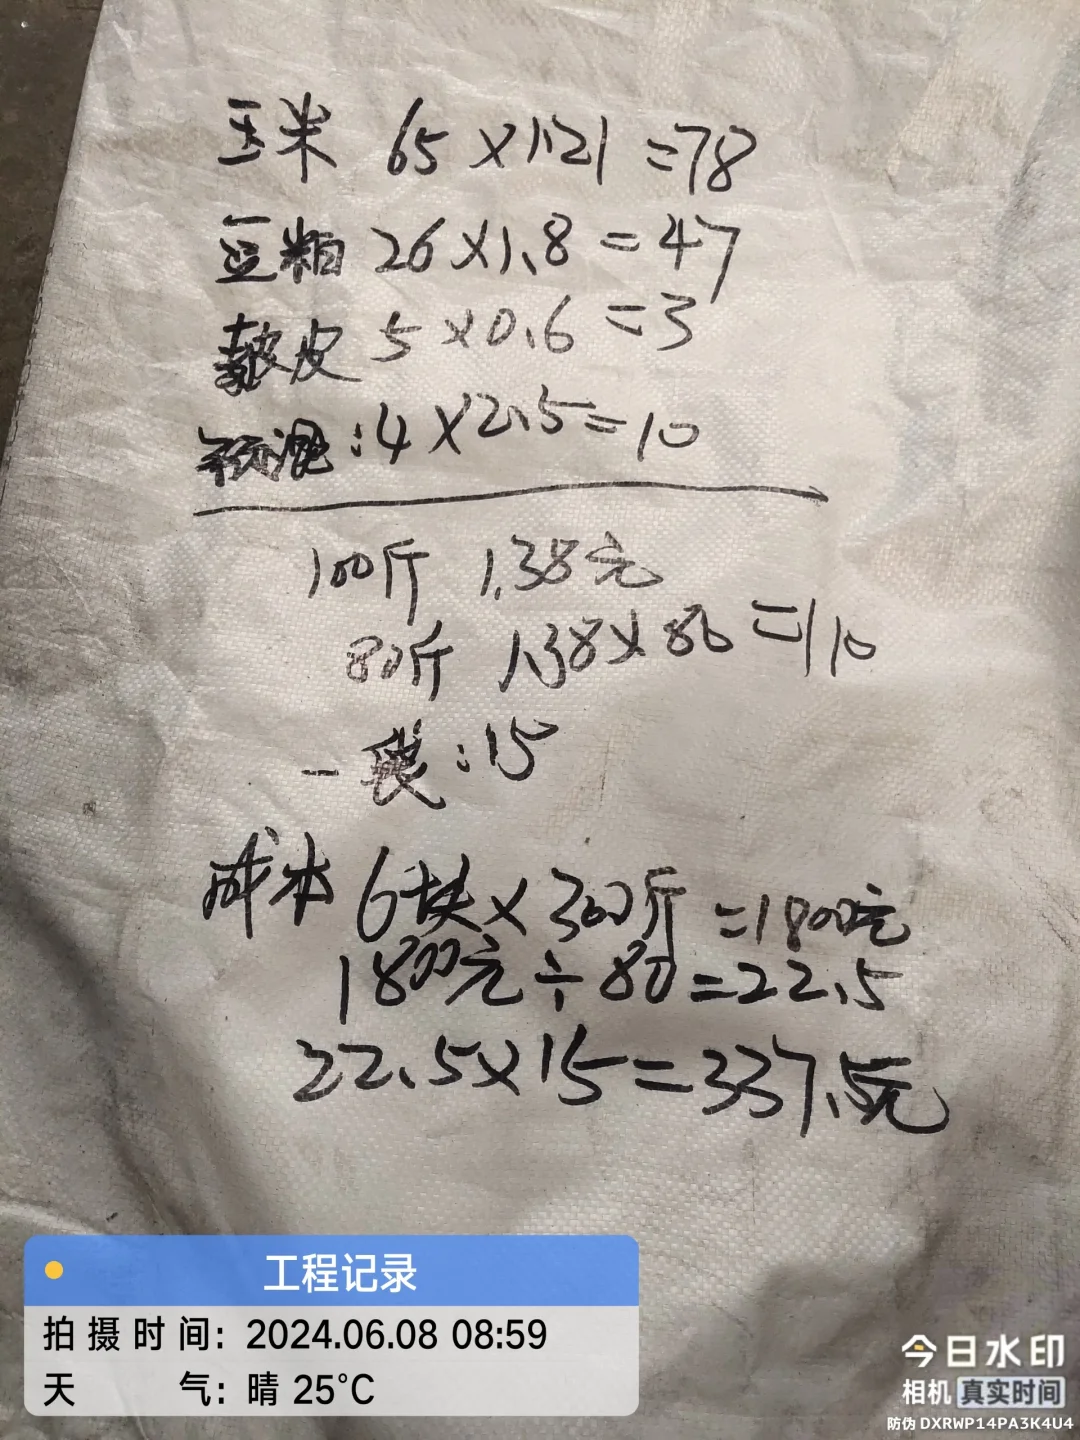 玉米 65×1.21=78
豆粕 26×1.8=47
麸皮 5×0.6=3
预混:4×2.5=10
100斤 1.38元
80斤 1.38×80=110
一袋:15
成本 6块×300斤=1800元
1800元÷80=22.5
22.5×15=337.5元
工程记录
拍摄时间:2024.06.08 08:59
天气:晴 25°C
今日水印
相机 真实时间
防伪 DXRWP14PA3K4U4